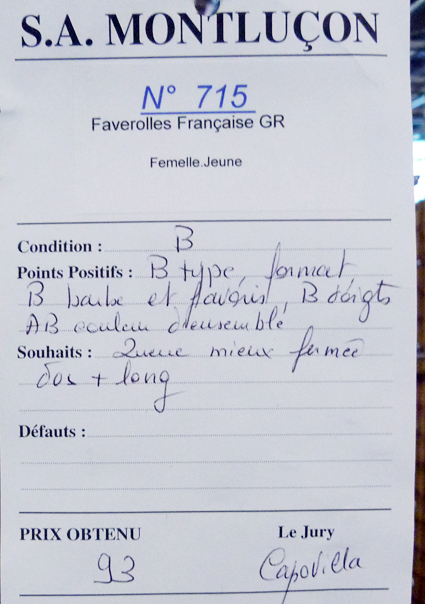 S.A. MONTLUÇON
N° 715
Faverolles Française GR
Femelle.Jeune
Condition : B
Points Positifs : B type, format,
B barbe et favoris, B doigts
AB couleur d'ensemble
Souhaits : Queue mieux fermée
dos + long
Défauts :
PRIX OBTENU Le Jury
93 Capovilla